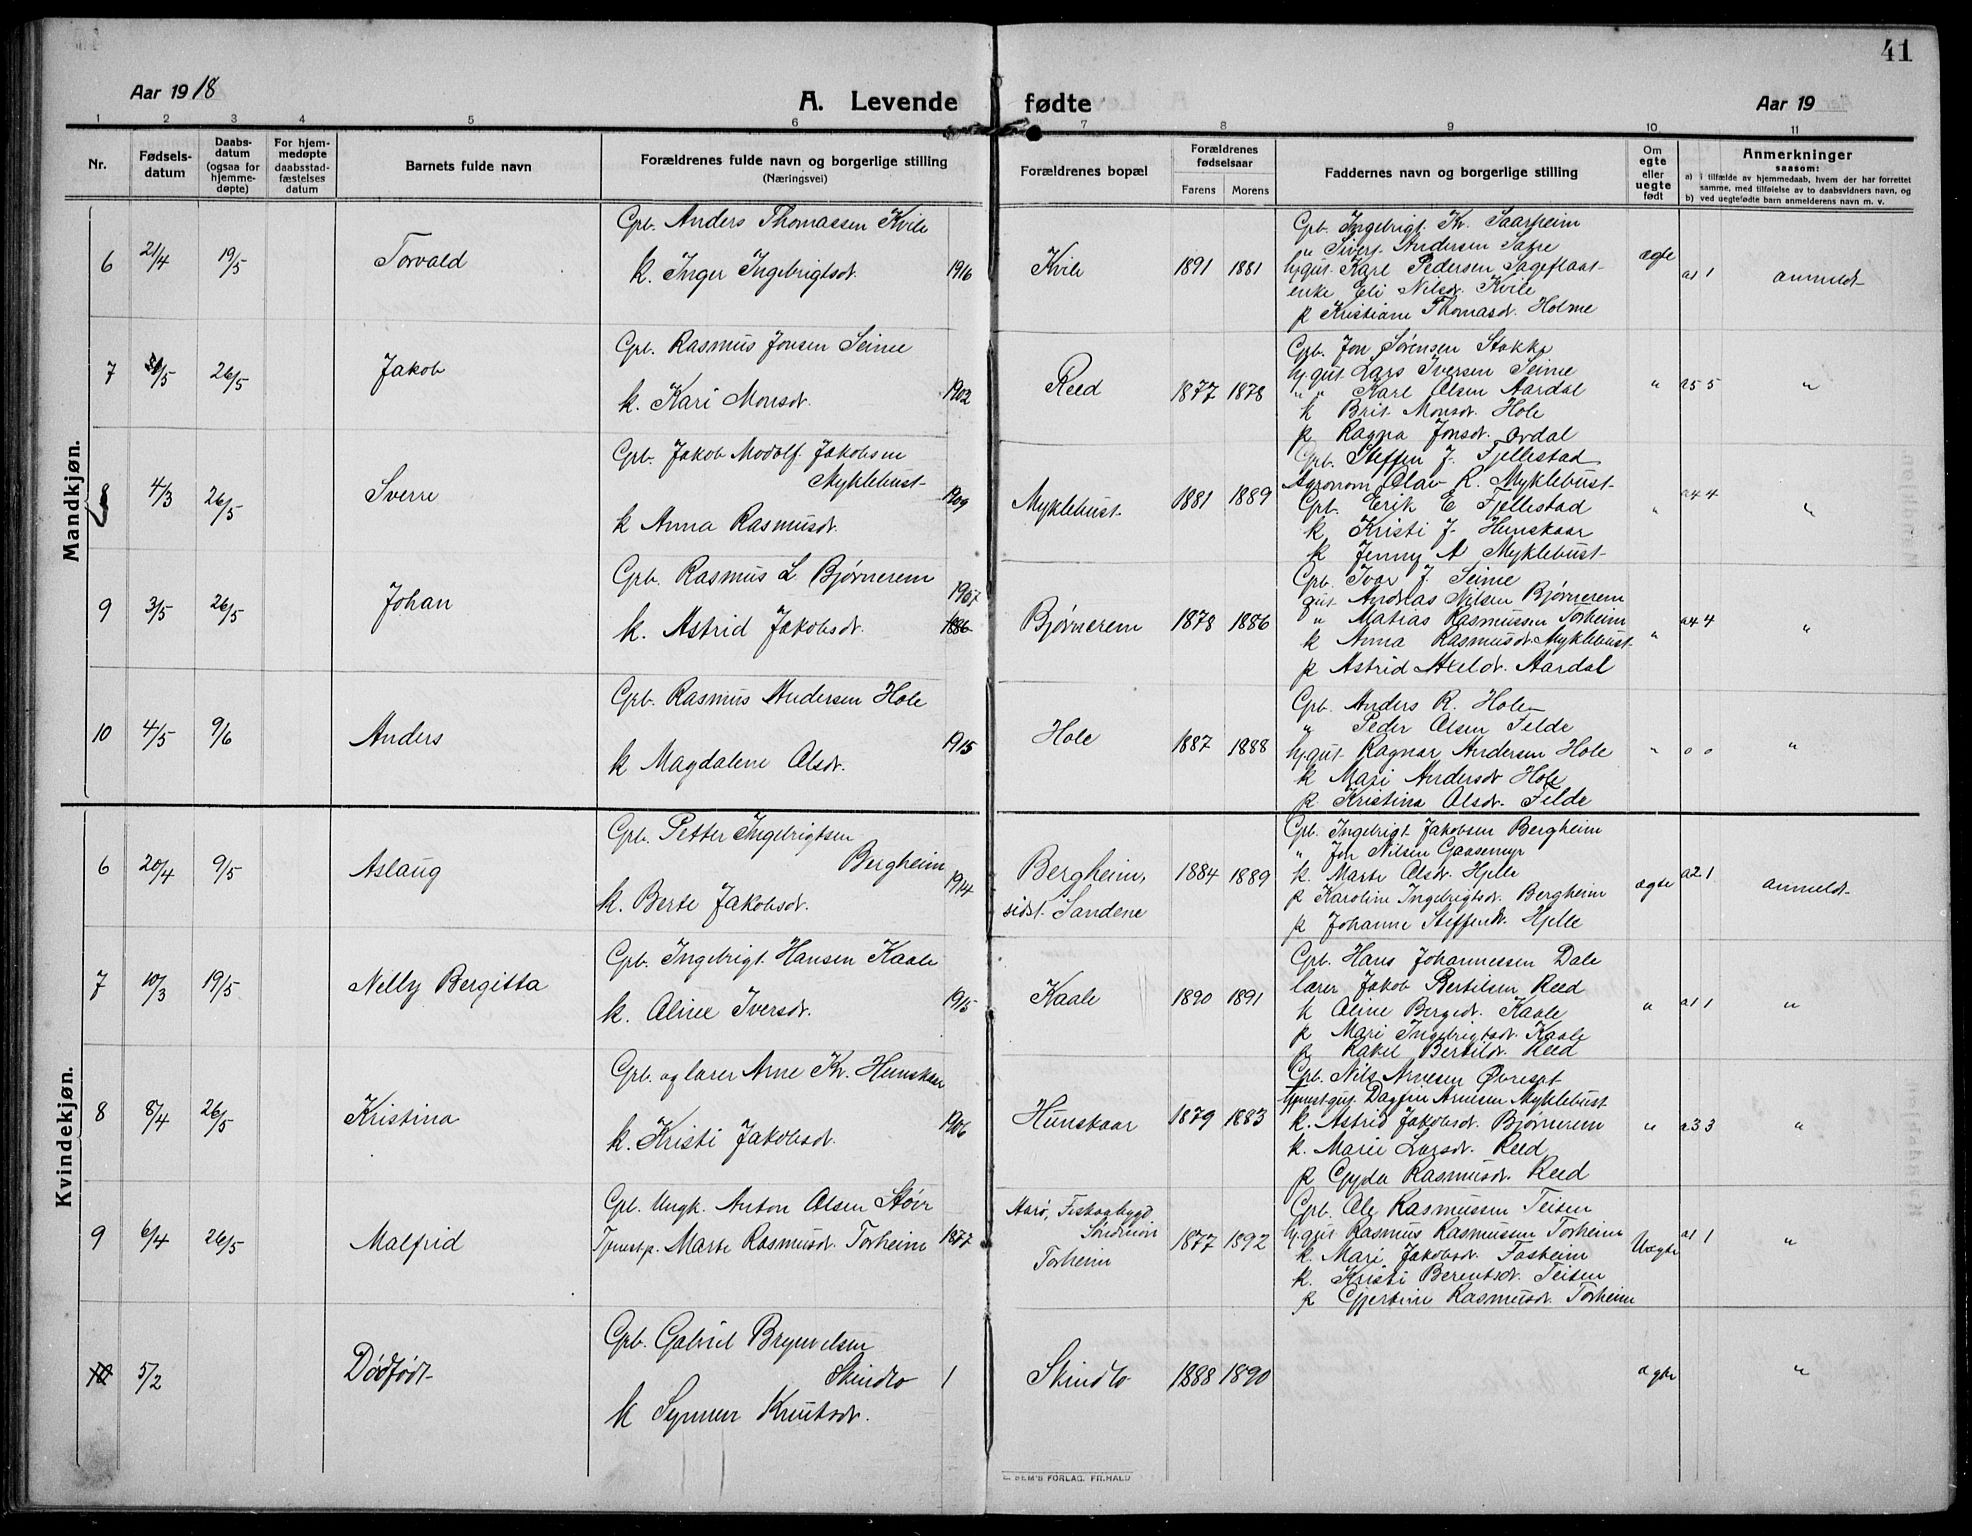 41
Aar 1918
A. Levende fødte
Aar 19
1 2 3 4 5 6 7 8 9 10 11
Nr.
Fødsels-
datum
Daabs-
datum
(ogsaa for
hjemme-
døpte)
For hjem-
medøpte
daabsstad-
fæstelses
datum
Barnets fulde navn
Forældrenes fulde navn og borgerlige stilling
(Næringsvei)
Forældrenes bopæl
Forældrenes
fødselsaar
Farens Morens
Faddernes navn og borgerlige stilling
Om
egte
eller
uegte
født
Anmerkninger
saasom:
a) i tilfælde av hjemmedaab, hvem der har forrettet
samme, med tilføielse av to daabsvidners navn, og
b) ved uegtefødte barn anmelderens navn m. v.
Mandkjøn.
6 21/4 19/5 Torvald
Grb. Anders Thomassen Kvile
k. Inger Ingebrigtsdt. 1916
Kvile 1891 1881
Grb. Ingebrigt Kr. Saarheim
" Sivert Andersen Sætre
hj.gut. Karl Pedersen Sageflaat
enke Eli Nilsdt. Kvile
p Kristiane Thomasdt. Holme
ægte a1 1 anmeldt
7 /5 26/5 Jakob
Grb. Rasmus Jonsen Seime
k. Kari Monsdt. 1902
Reed 1877 1878
Grb. Jon Sørensen Stokke
hj.gut. Lars Iversen Seime
" " Karl Olsen Aardal
k Brit Monsdt. Hole
p Ragna Jonsdt. Ardal
" a5 5 "
4/3 26/5 Sverre
Grb. Jakob Modolf Jakobsen
Myklebust
k Anna Rasmusdt. 1909
Myklebust 1881 1889
Grb. Steffen J. Fjellestad
Agronom Olav R. Myklebust
Grb. Erik E Fjellestad
k Kristi J. Hunskaar
k Jenny A Myklebust
" a4 4 "
9 3/5 26/5 Johan
Grb. Rasmus L Bjørnerem
1907
k. Astrid Jakobsdt. 1886
Bjørnerem 1878 1886
Grb. Ivar J. Seime
gut. Andreas Nilsen Bjørnerem
" Matias Rasmussen Torheim
k Anna Rasmusdt. Myklebust
p Astrid Akseldt. Aardal
" a4 4 "
10 4/5 9/6 Anders
Grb. Rasmus Andersen Hole
k Magdalene Olsdt. 1915
Hole 1887 1888
Grb. Anders R. Hole
" Peder Olsen Felde
hj.gut. Ragnar Andersen Hole
k Mari Andersdt Hole
p. Kristina Olsdt. Felde
" 0 0 "
Kvindekjøn.
6 20/4 9/5 Aslaug
Grb. Petter Ingebrigtsen
Bergheim
k. Berte Jakobsdt. 1914
Bergheim,
sidst. Sandene 1884 1889
Grb. Ingebrigt Jakobsen Bergheim
" Jon Nilsen Gaasemyr
k. Marte Olsdt. Hjelle
p Karoline Ingebrigtsdt. Bergheim
p Johanne Steffendt. Hjelle
ægte a2 1 anmeldt
7 10/3 19/5 Nelly Bergitta
Grb. Ingebrigt Hansen Kaale
k. Aline Iversdt. 1915
Kaale 1890 1891
Grb. Hans Johannessen Dale
lærer Jakob Bertilsen Reed
k Aline Bergedt. Kaale
p Mari Ingebrigtsdt. Kaale
p Rakel Bertildt. Reed
" a1 1 "
8 8/4 26/5 Kristina
Grb. og lærer Arne Kr. Hunskaar
k. Kristi Jakobsdt. 1906
Hunskaar 1879 1883
Grb. Nils Arnesen Øvreset
Tjenestgut Dagfin Arnesen Myklebust
k. Astrid Jakobsdt. Bjørnerem
k. Marie Larsdt. Reed
p Gyda Rasmusdt. Reed
" a3 3 "
9 6/4 26/5 Malfrid
Grb. Ungk. Anton Olsen Støve
Tjenestp. Marte Rasmusdt. Torheim 1877
Aarø, Fiskaabygd
Søndmør
Torheim 1877 1892
Grb. Ole Rasmusen Teisen
hj.gut Rasmus Rasmussen Torheim
k. Mari Jakobsdt. Fosheim
k. Kristi Berentsdt. Teisen
p Gjertine Rasmusdt. Torheim
Uægte a1 1 "
10 5/2 Dødfødt
Grb. Gabriel Brynjelsen
Skindlo 1
k Synneve Knutsdt.
Skindlo 1888 1890
ægte "
FORLAG. FR. HALD